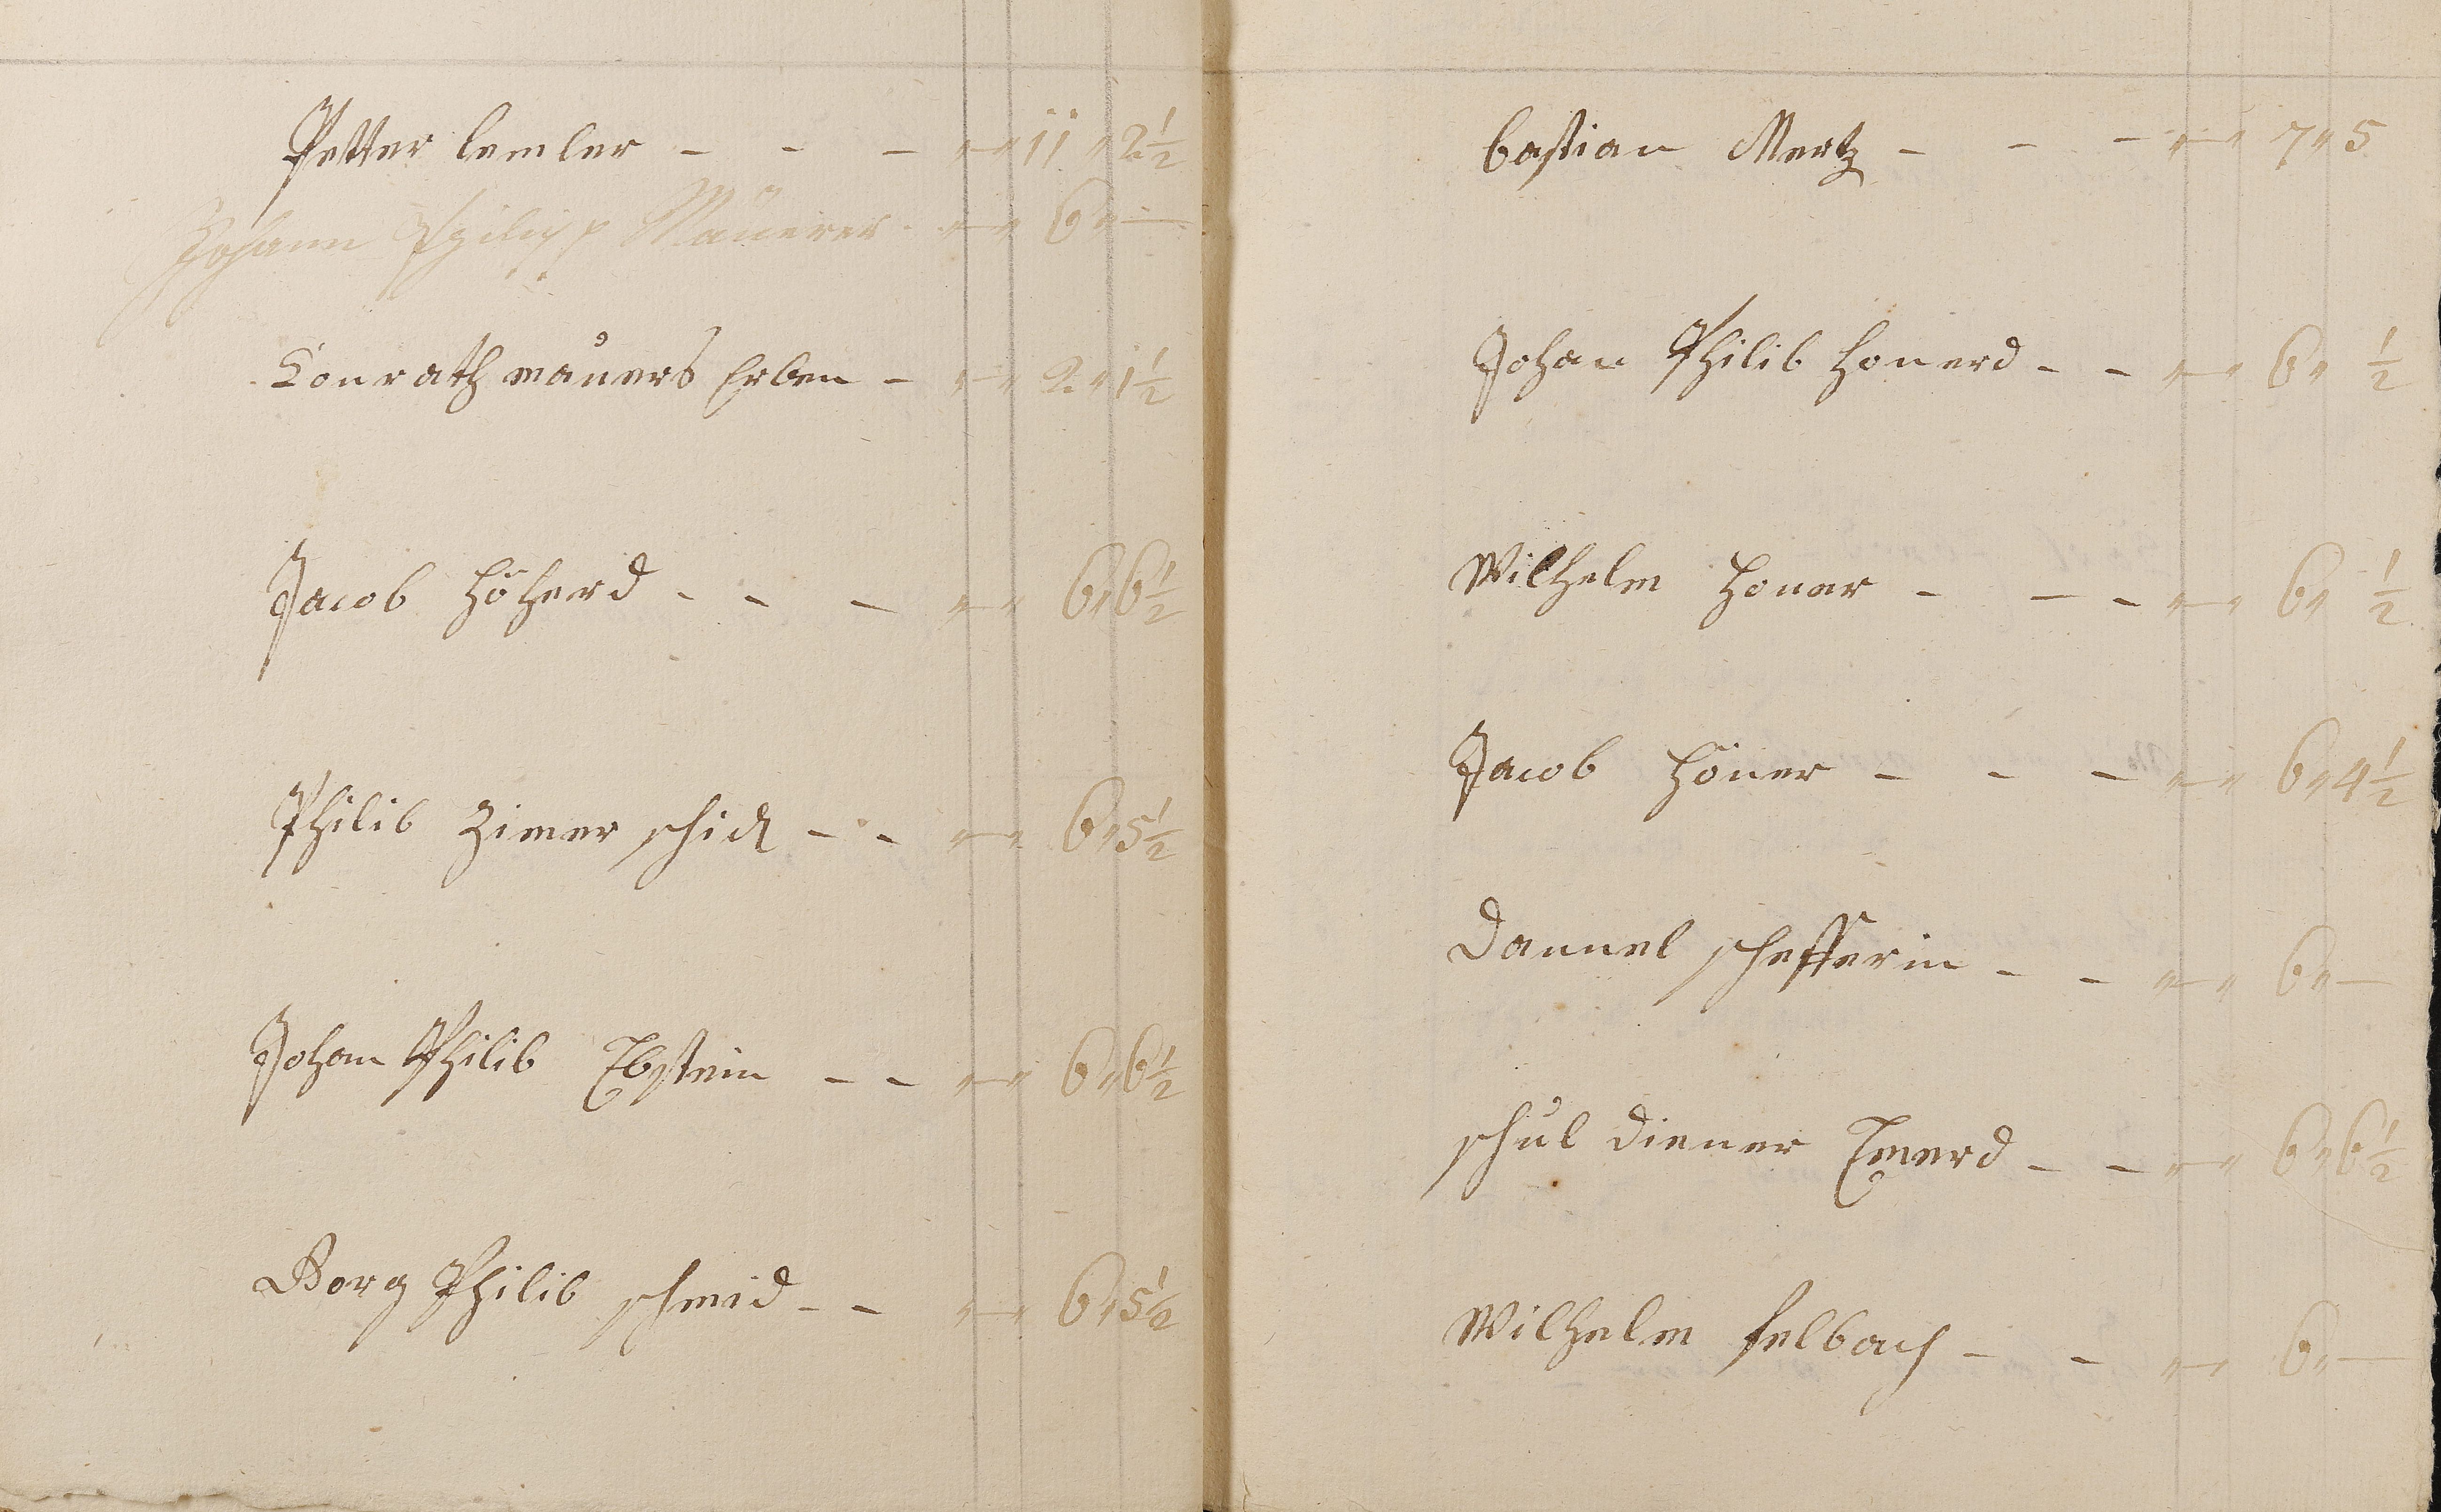 Petter Lemler - - - „—„ 11 „ 2½
Johann Philipp Mäuerer - „—„ 6 „ —
Conrath maurers Erben - „—„ 2 „ 1½
Jacob Höherd - - - „—„ 6 „ 6½
Philib Zimer schid - - „—„ 6 „ 5½
Johan Philib Ebstein - - „—„ 6 „ 6½
Borg Philib schmid - - „—„ 6 „ 5½
bastian Mertz - - - „—„ 7 „ 5
Johan Philib Honerd - - „—„ 6 „ ½
Wilhelm Honer - - - „—„ 6 „ ½
Jacob Höner - - - „—„ 6 „ 4½
Dannel schefferin - - „—„ 6 „ —
schul diener Emerd - - „—„ 6 „ 6½
Wilhelm felbach - - „—„ 6 „ —